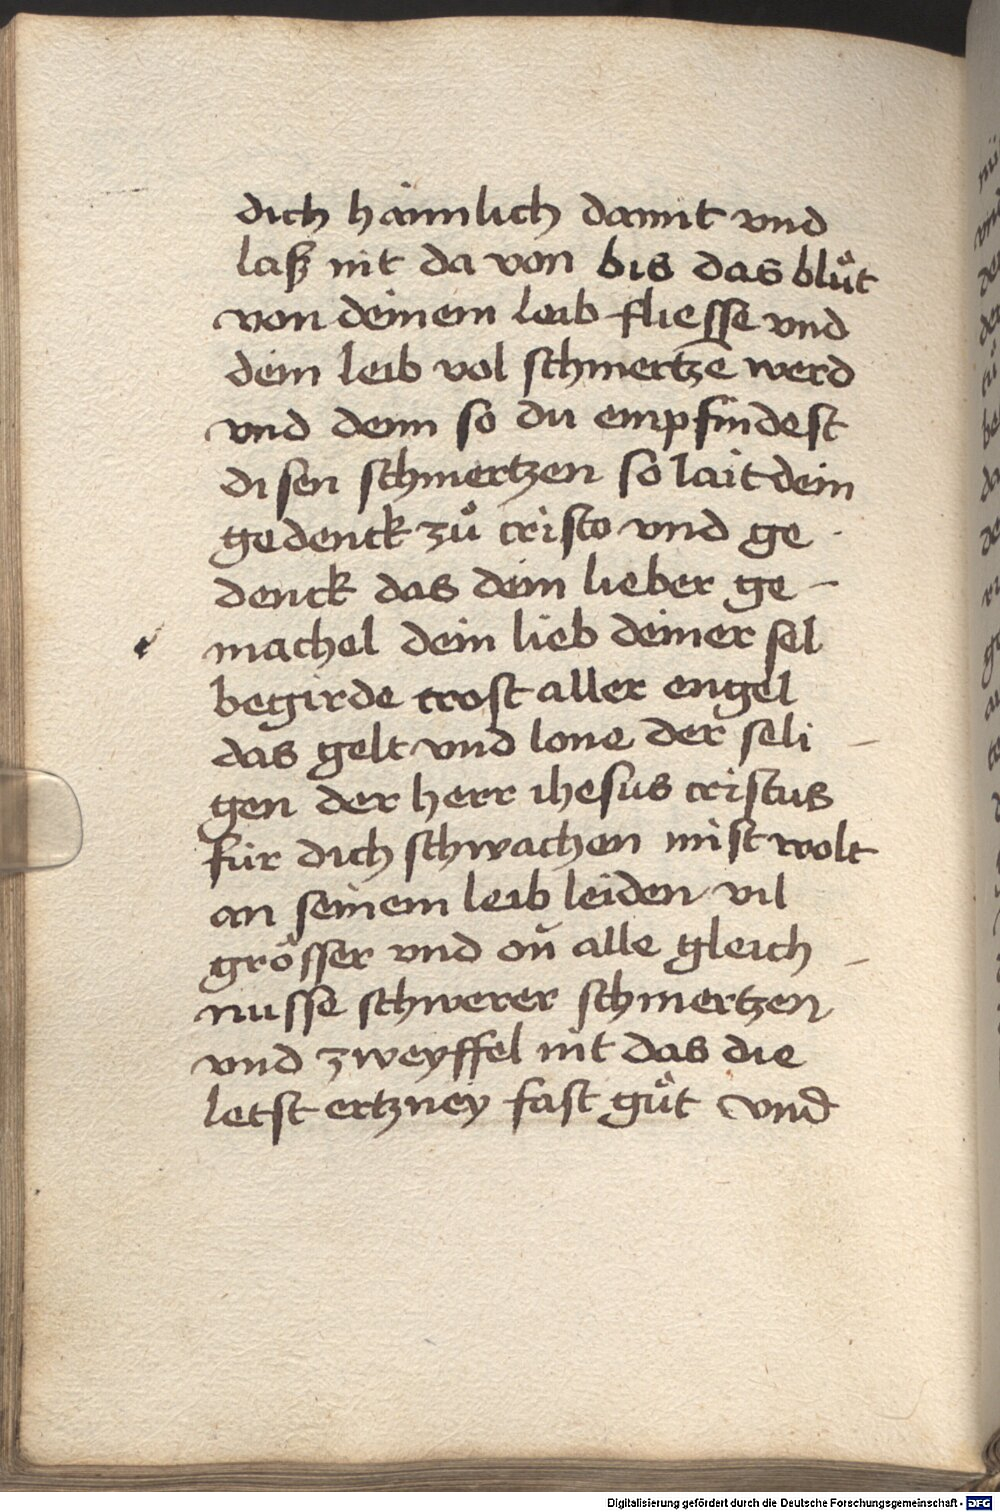 dich häimlich damit vnd
laß nit da von bis das blůt
von deinem leib fliesse vnd
dein leib vol schmertzē werd
vnd denn so du empfindest
disen schmertzen so lait dein
gedenck zů cristo vnd ge
denck das dein lieber ge –
machel dein lieb deiner sel
begirde trost aller engel
das gelt vnd lone der seli –
gen der herr ihesus cristus
für dich schwachen mist wolt
an seinem leib leiden vil
grösser vnd on alle gleich –
nusse schwerer schmertzen
vnd zweyffel nit das die
letst ertzney fast gůt vnd
Digitalisierung gefördert durch die Deutsche Forschungsgemeinschaft - DFG